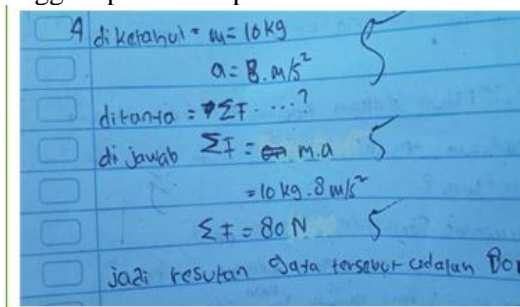 A diketahui = m = 10 kg
a = 8 m/s²
ditanya = ΣF ....?
dijawab ΣF = m.a
= 10 kg . 8 m/s²
ΣF = 80 N
jadi resutan gaya tersebut adalah
5
5
5